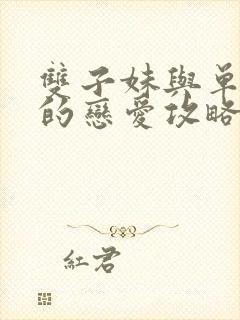 雙子妹與單
的戀愛攻略
紅君